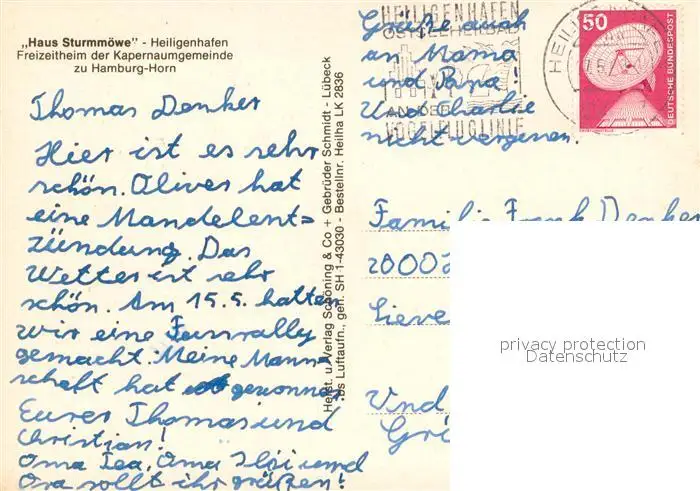 „Haus Sturmmöwe" - Heiligenhafen
Freizeitheim der Kapernaumgemeinde
zu Hamburg-Horn
Thomas Denker
Hier ist es sehr
schön. Oliver hat
eine Mandelent=
zündung. Das
Wetter ist sehr
schön. Am 15.5. hatten
wir eine Funrally
gemacht. Meine Mann-
schaft hat gewonnen
Eurer Thomas und
Christian!
Oma Tea, Oma Ilsi und
Opa sollt ihr grüßen!
Herst. u. Verlag Schöning & Co + Gebrüder Schmidt - Lübeck
bs Luftaufn., gen. SH 1-43030 - Bestellnr. Heilha LK 2836
Grüße auch
an Mama
und Papa!
Und Charlie
nicht vergessen.
HEILIGENHAFEN
OSTSEEHEILBAD
AN DER
VOGELFLUGLINIE
50
DEUTSCHE BUNDESPOST
Familie Frank Denker
2000
Sieve
Und
Gr
privacy protection
Datenschutz